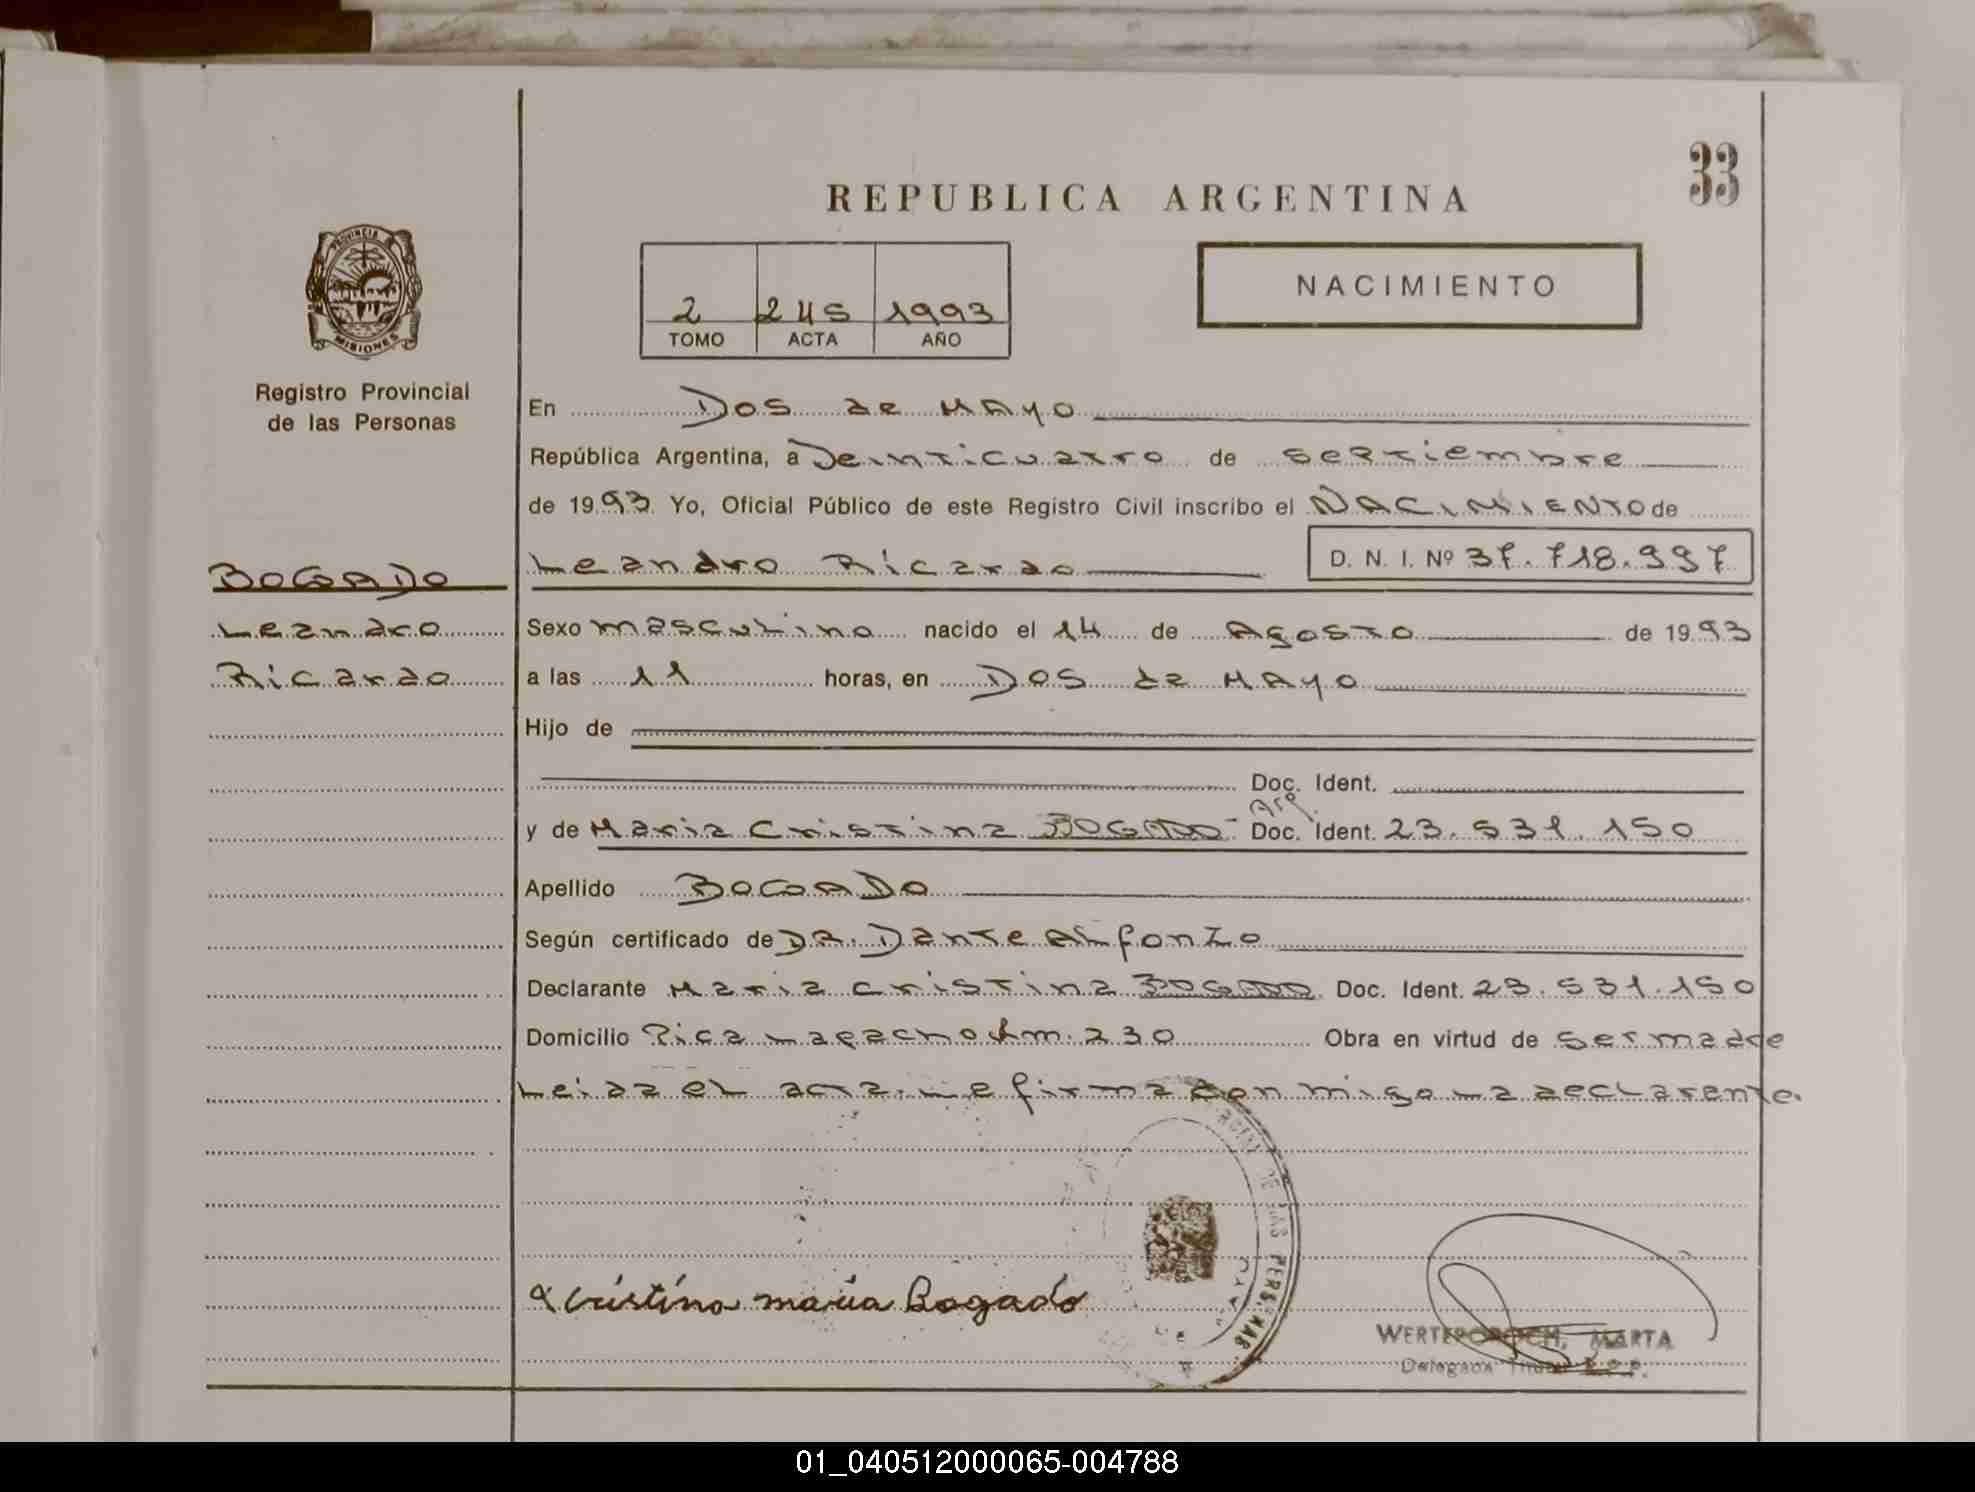 33
REPUBLICA ARGENTINA
PROVINCIA DE
MISIONES
Registro Provincial
de las Personas
NACIMIENTO
2 245 1993
TOMO ACTA AÑO
En Dos de Mayo
República Argentina, a Veinticuatro de Septiembre
de 1993 Yo, Oficial Público de este Registro Civil inscribo el NACIMIENTO de
BOGADO Leandro Ricardo D. N. I. Nº 37.718.997
Leandro Sexo masculino nacido el 14 de Agosto de 1993
Ricardo a las 11 horas, en Dos de Mayo
Hijo de
Doc. Ident.
Arg.
y de Maria Cristina BOGADO- Doc. Ident. 23.531.150
Apellido BOGADO
Según certificado de DR. Dante Alfonzo
Declarante Maria Cristina BOGADO Doc. Ident. 23.531.150
Domicilio Pica Lapacho Km. 230 Obra en virtud de ser madre
Leida el acta. Le firma con migo la declarente.
DE LAS PERSONAS
Cristina maria Bogado
WERTEPOROCH, MARTA
Delegada Titular R.P.P.
01_040512000065-004788